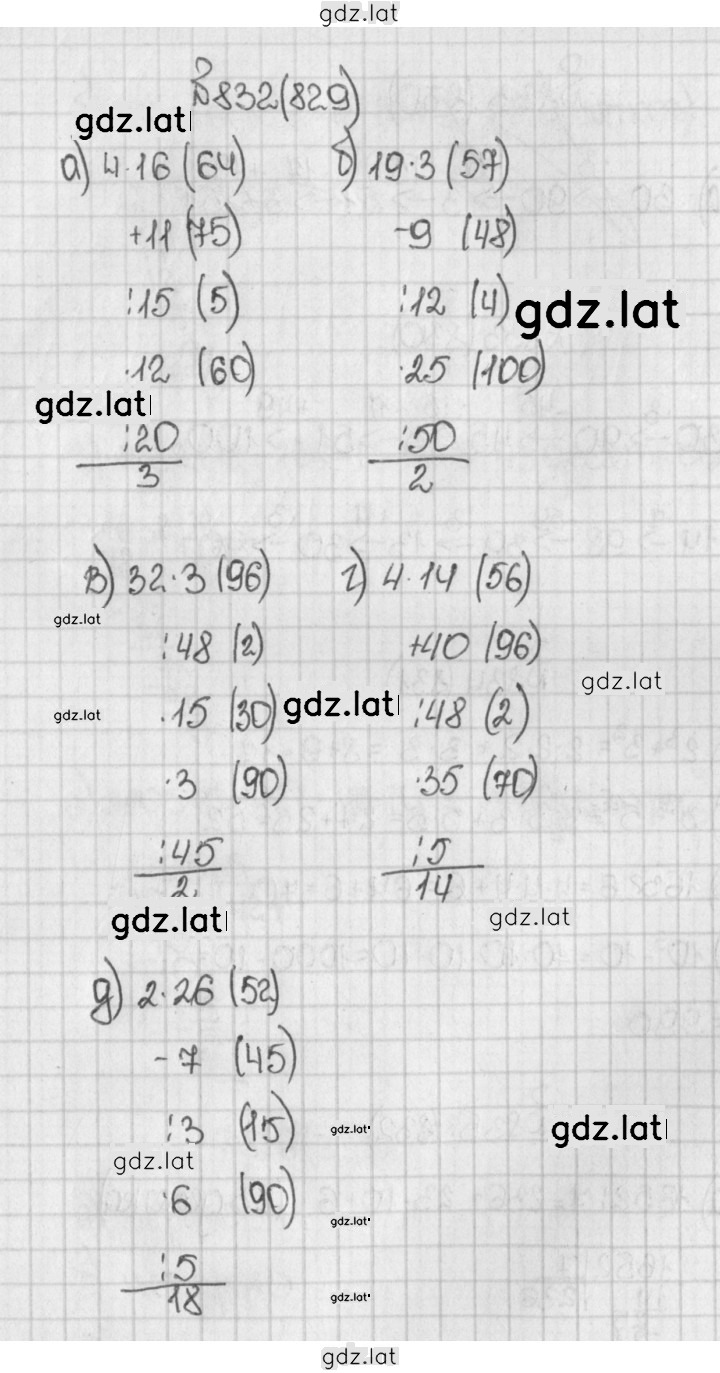 gdz.lat
№832(829)
gdz.lat
а) 4·16 (64)
+11 (75)
:15 (5)
·12 (60)
gdz.lat
:20
3
б) 19·3 (57)
-9 (48)
:12 (4)
gdz.lat
·25 (100)
:50
2
в) 32·3 (96)
gdz.lat
:48 (2)
gdz.lat
·15 (30)
gdz.lat
·3 (90)
:45
2
gdz.lat
г) 4·14 (56)
+40 (96)
gdz.lat
:48 (2)
·35 (70)
:5
14
gdz.lat
д) 2·26 (52)
-7 (45)
:3 (15)
gdz.lat
gdz.lat
gdz.lat
·6 (90)
gdz.lat
:5
18
gdz.lat
gdz.lat